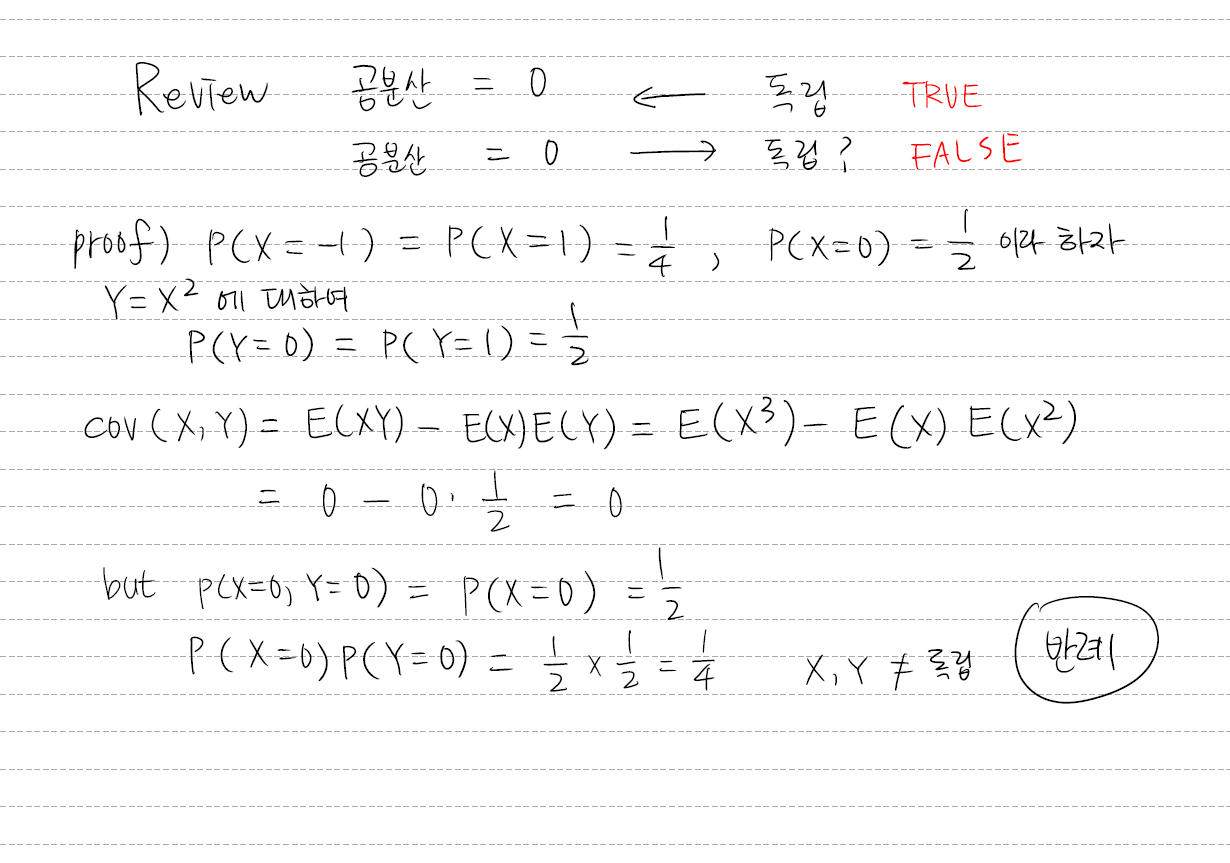 Review 공분산 = 0 ← 독립 TRUE
공분산 = 0 → 독립? FALSE
proof) P(X=-1) = P(X=1) = 1/4, P(X=0) = 1/2 이라 하자
Y=X² 에 대하여
P(Y=0) = P(Y=1) = 1/2
cov(X,Y) = E(XY) - E(X)E(Y) = E(X³) - E(X) E(X²)
= 0 - 0 · 1/2 = 0
but P(X=0, Y=0) = P(X=0) = 1/2
P(X=0)P(Y=0) = 1/2 × 1/2 = 1/4 X, Y ≠ 독립 반례